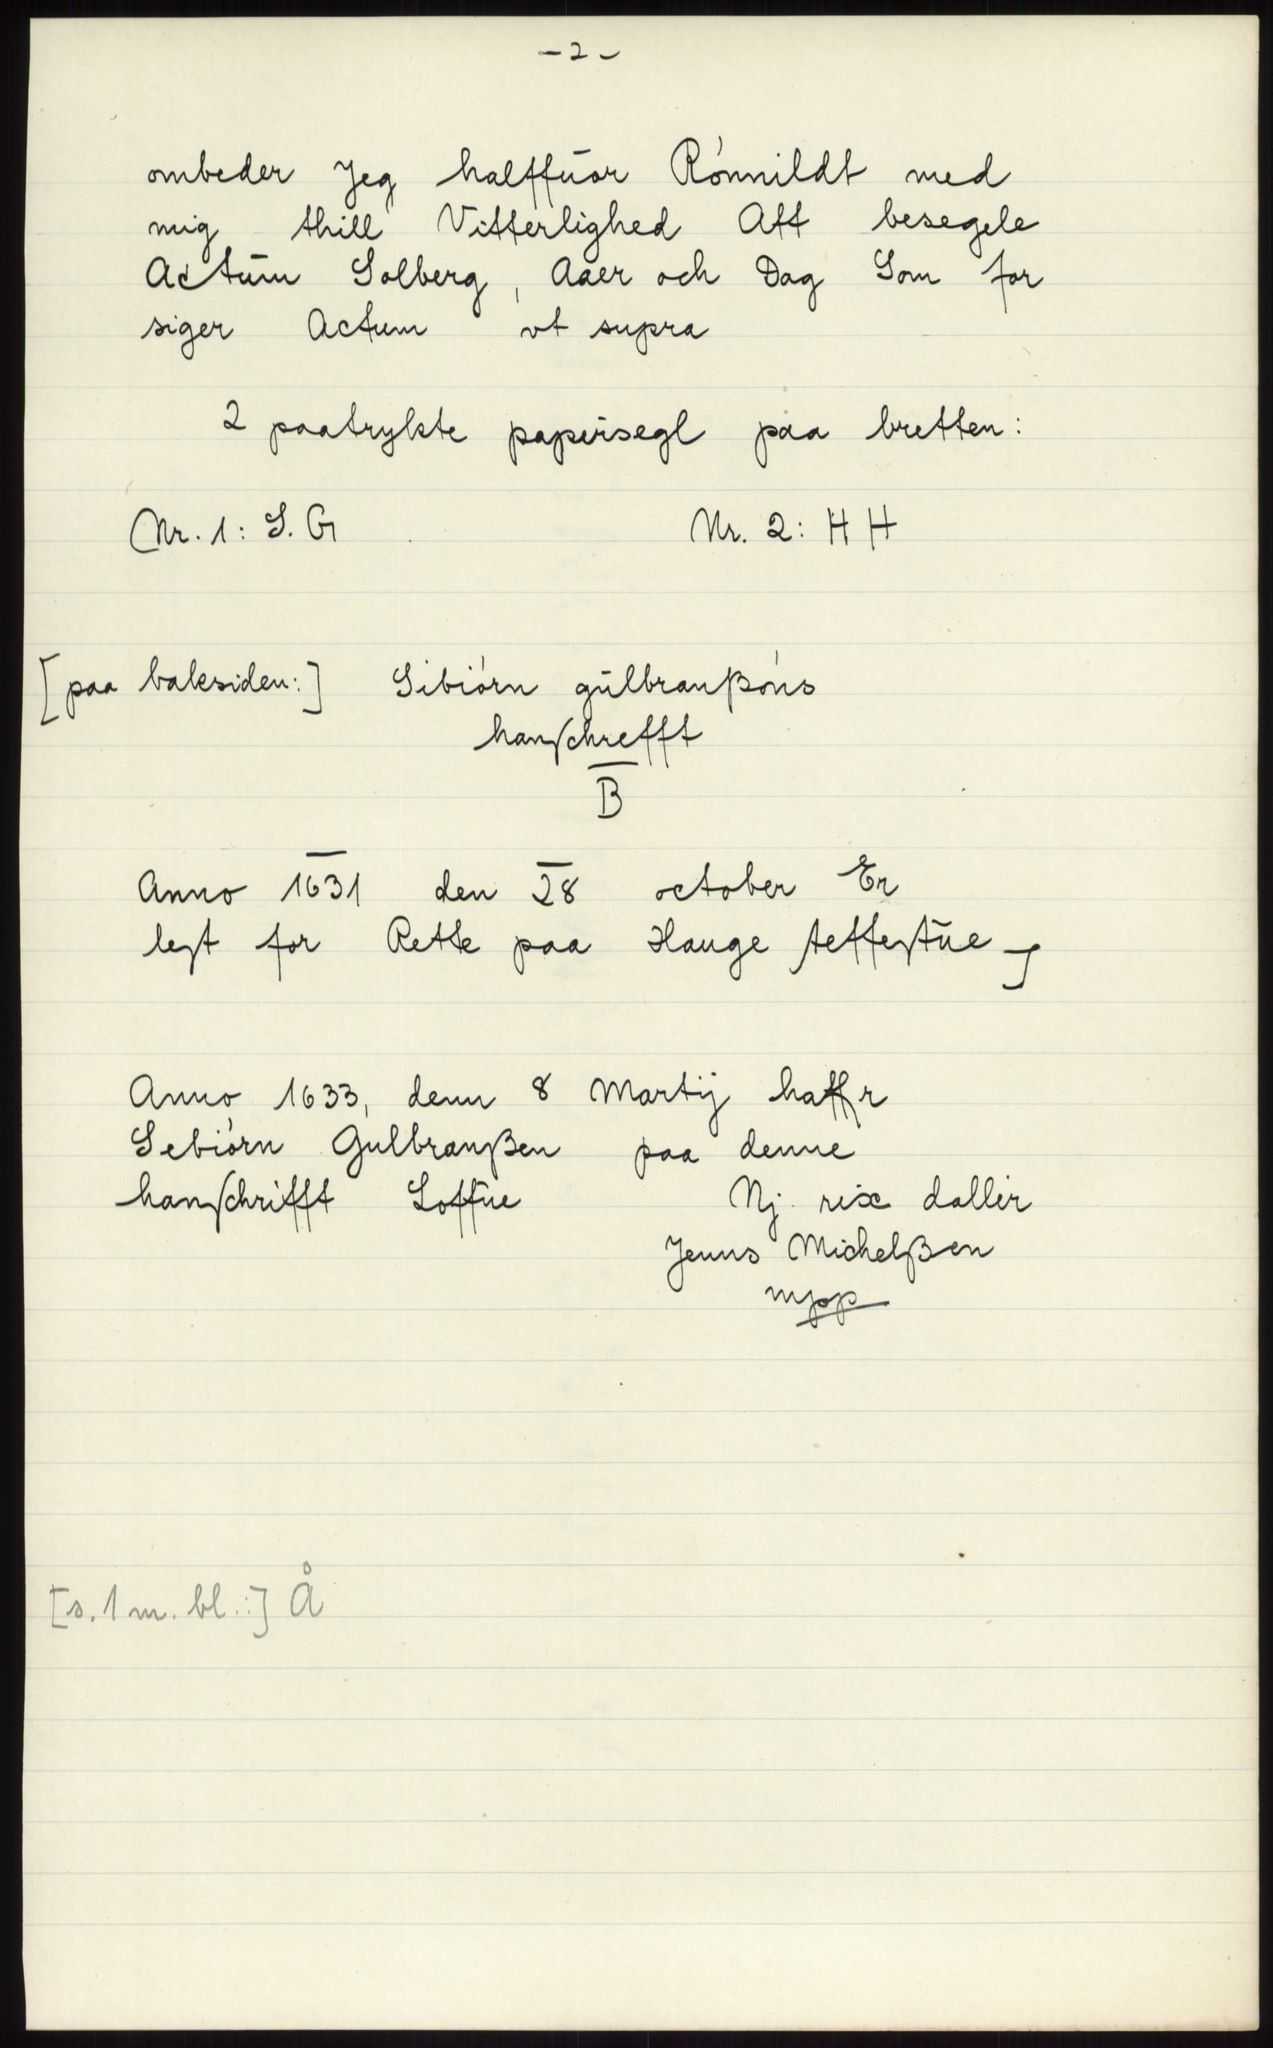 - 2 -
ombeder Jeg halffūor Rónnildt med
mig thill Vitterlighed Att besegele
Actūm Solberg, Aaer och Dag Som for
siger Actum vt supra
2 paatrykte papirsegl paa bretten:
Nr. 1: S. G Nr. 2: H H
[paa baksiden:] Sibiórn gūlbranßóns
hanſchrefft
B
Anno 1631 den 28 october Er
leſt for Rette paa Hauge teffeſtūe
Anno 1633, denn 8 Martij haffr
Sebiórn Gulbranßen paa denne
hanſchrifft Loffūe Nj. rix dallir
Jenns Michelßen
mpp
[s. 1 m. bl.:] Å